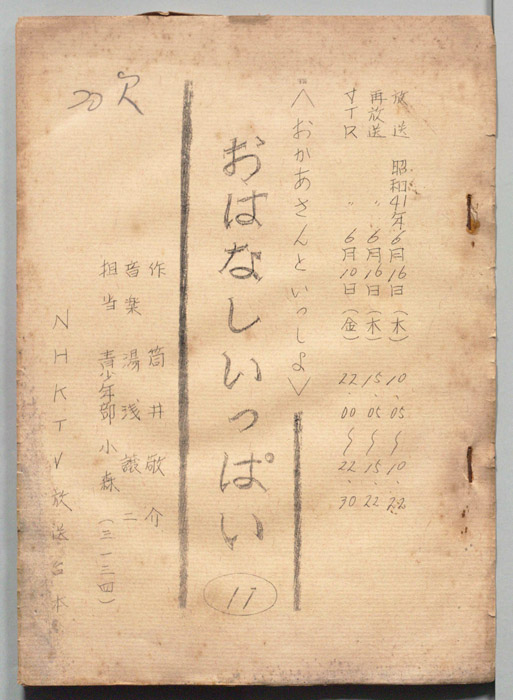 放送 昭和41年6月16日(木) 10.05〜10.22
再放送 〃 6月16日(木) 15.05〜15.22
VTR 〃 6月10日(金) 22.00〜22.30
〈おかあさんといっしょ〉
おはなしいっぱい
17
作 筒井敬介
音楽 湯浅譲二
担当 青少年部 小森(三一三四)
NHKTV放送台本
欠